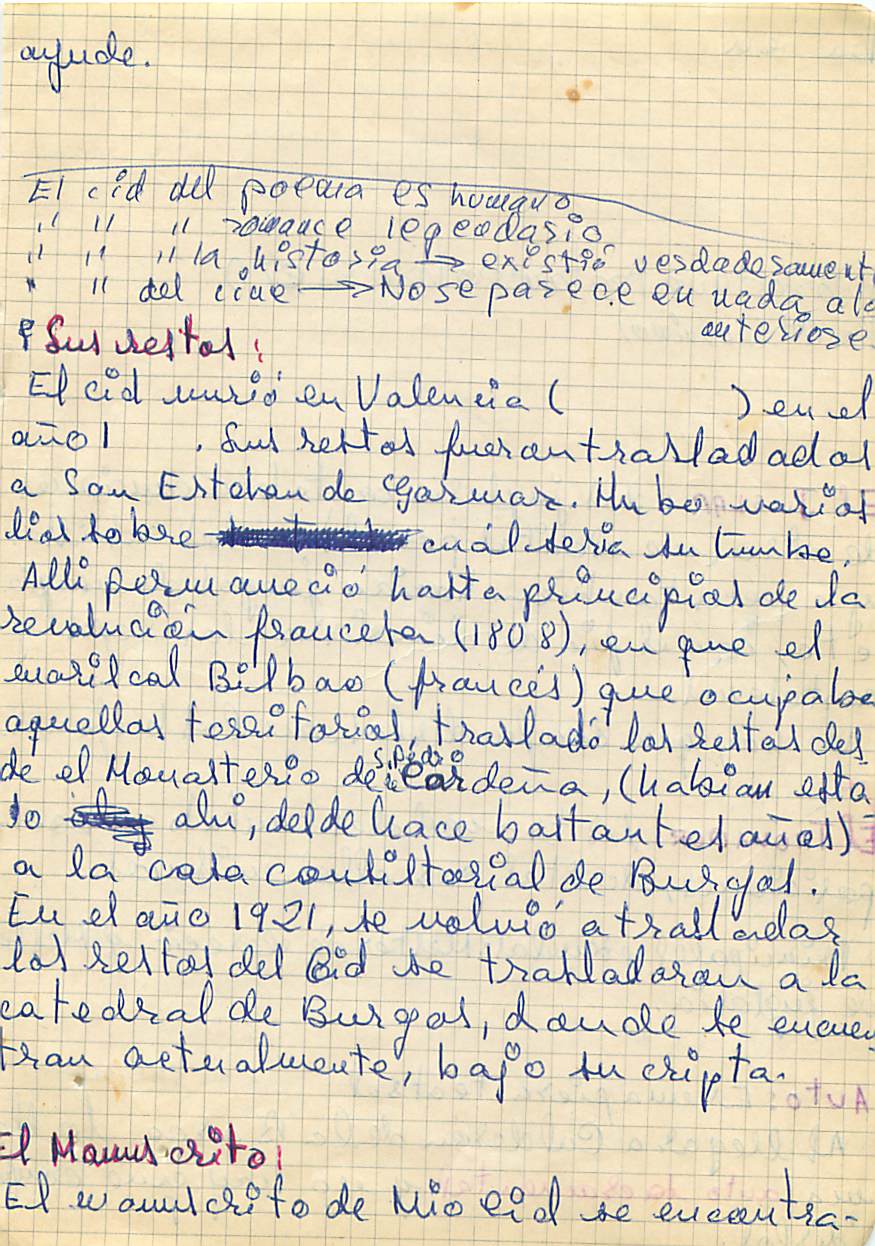 ayude.
El cid del poema es humano
" " " romance legendario
" " " la historia → existió verdaderament
" " del cine → No se parece en nada a lo
anteriore
Sus restos:
El cid murió en Valencia (        ) en el
año 1    . Sus restos fueron trasladados
a San Esteban de Gormaz. Hubo varios
lios sobre cuál seria su tumba.
Alli permaneció hasta principios de la
revolución francesa (1808), en que el
mariscal Bilbao (francés) que ocupaba
aquellos territorios, trasladó los restos des
de el Monasterio de S. Pedro Cardeña, (habian esta
do ahi, desde hace bastantes años)
a la casa consistorial de Burgos.
En el año 1921, se volvió a trasladar
los restos del Cid se trasladaron a la
catedral de Burgos, donde se encuen
tran actualmente, bajo su cripta.
El Manuscrito:
El manuscrito de Mio Cid se encontra-